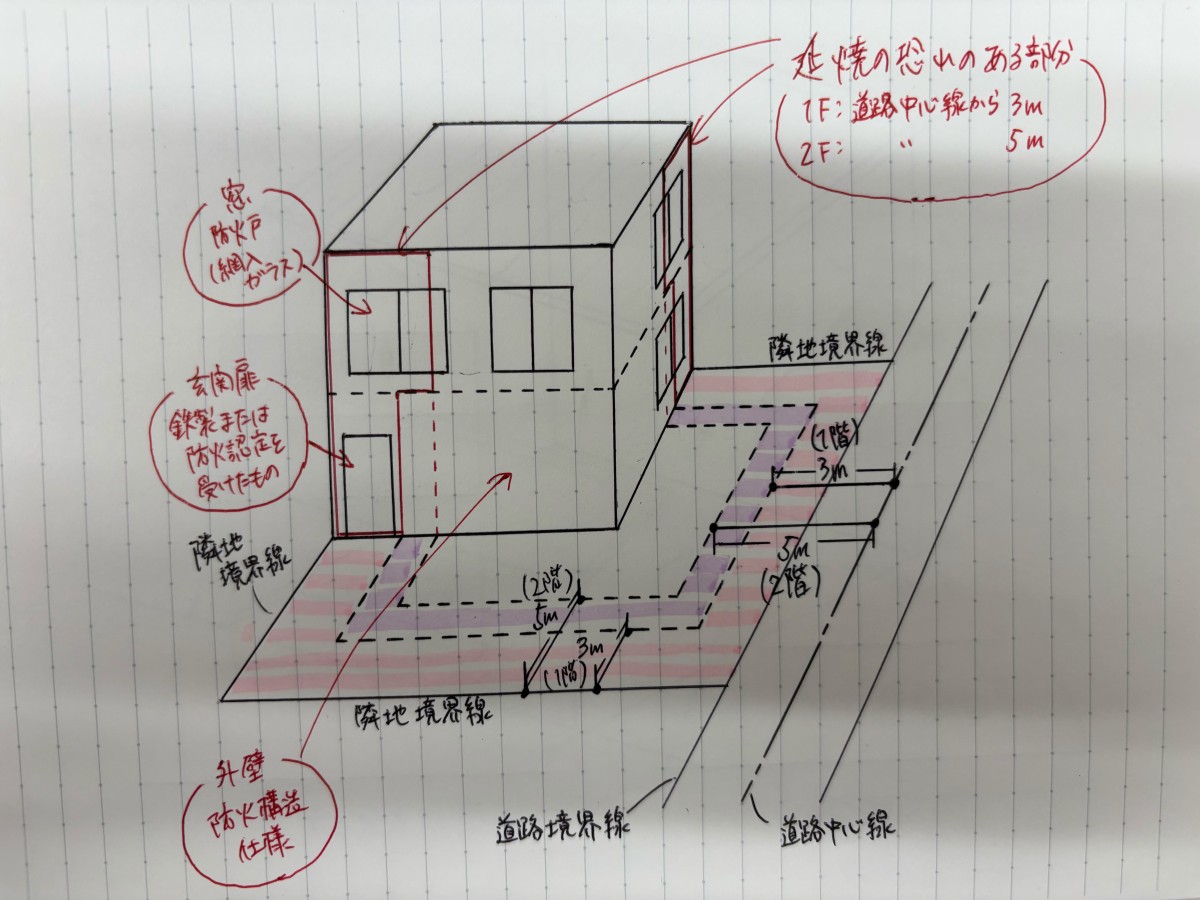 延焼の恐れのある部分
1F：道路中心線から 3m
2F： 〃 5m
窓
防火戸
(網入
ガラス)
玄関扉
鉄製または
防火認定を
受けたもの
隣地
境界線
隣地境界線
(1階)
3m
5m
(2階)
(2階)
5m
3m
(1階)
隣地境界線
外壁
防火構造
仕様
道路境界線
道路中心線